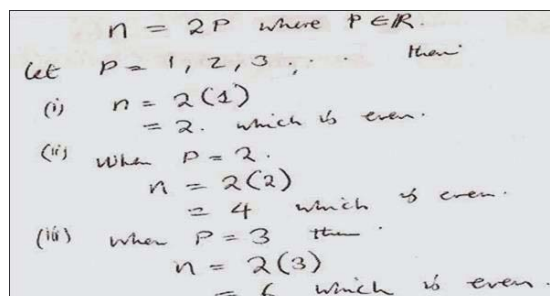 n = 2P where P ∈ ℝ.
Let P = 1, 2, 3, ... then
(i) n = 2(1)
= 2. which is even.
(ii) When P = 2.
n = 2(2)
= 4 which is even.
(iii) when P = 3 then
n = 2(3)
= 6 which is even.